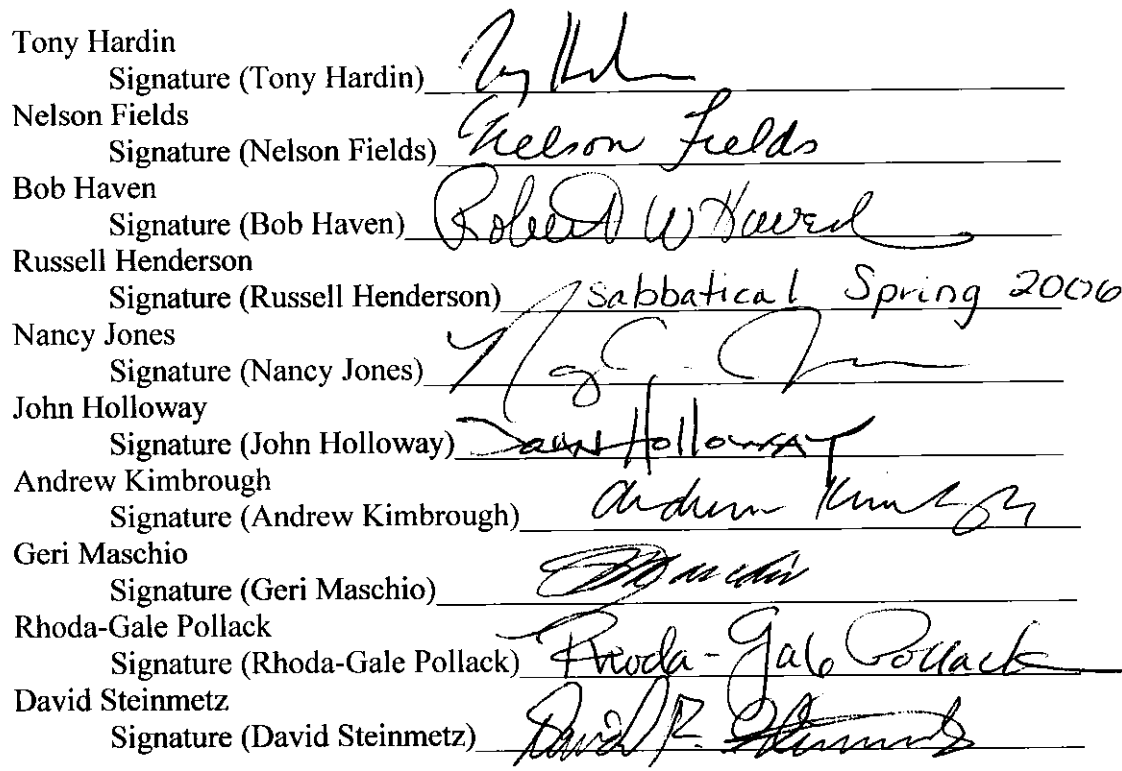 Tony Hardin
Signature (Tony Hardin)
Nelson Fields
Signature (Nelson Fields) Nelson Fields
Bob Haven
Signature (Bob Haven) Robert W Haven
Russell Henderson
Signature (Russell Henderson) Sabbatical Spring 2006
Nancy Jones
Signature (Nancy Jones)
John Holloway
Signature (John Holloway) John Holloway
Andrew Kimbrough
Signature (Andrew Kimbrough) Andrew
Geri Maschio
Signature (Geri Maschio)
Rhoda-Gale Pollack
Signature (Rhoda-Gale Pollack) Rhoda-Gale Pollack
David Steinmetz
Signature (David Steinmetz) David R. Steinmetz